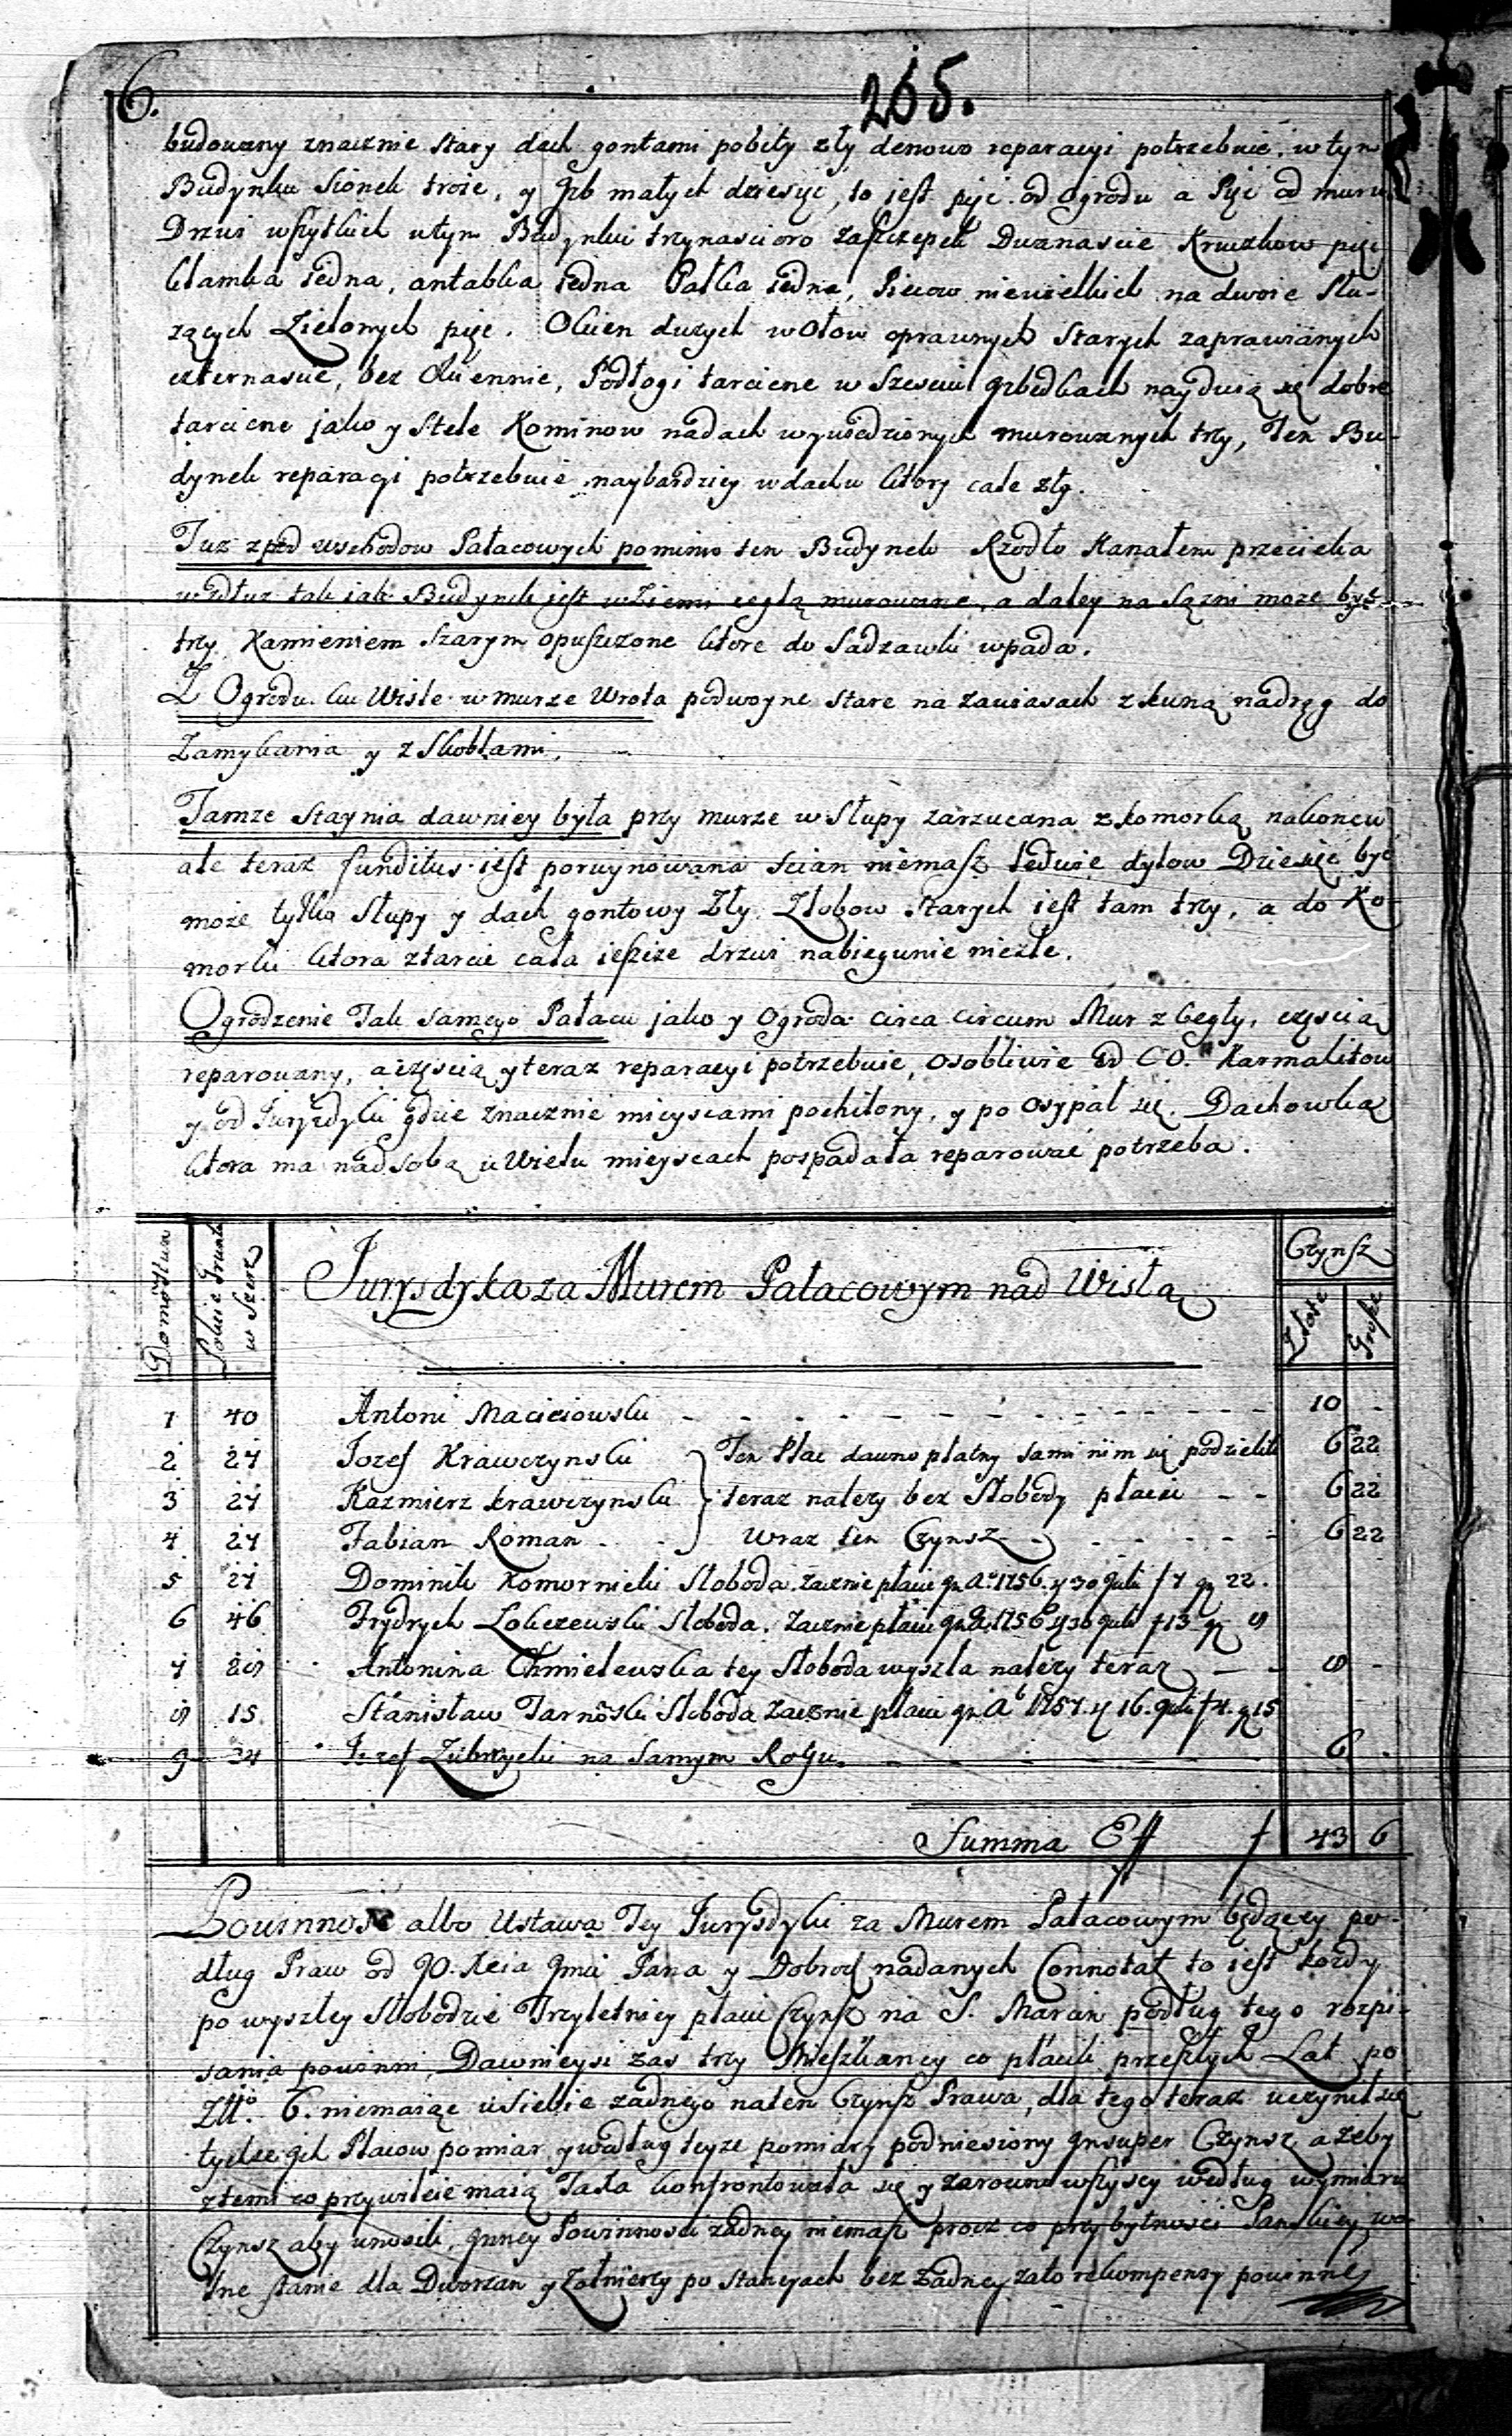 6.
265.
budowany znacznie stary dach gontami pobity zły denowo reparacyi potrzebuie. w tym
Budynku Sionek troie, y Jzb małych dziesięć, to jest pięć od Ogrodu a Pięć od muru
Drzwi wszytkich wtym Budynku trzynascioro Zaszczepek Dwanascie Kruczkow pięć
klamka iedna, antabka iedna Pałka iedna, Piecow niewielkich na dwoie Słu-
zących Zielonych pięć. Okien duzych wołow oprawnych Starych zaprawianych
czternascie, bez Okiennic, Podłogi tarcicne w Szesciu Jzbedkach nayduią się dobre
tarcicne jako y Stele Kominow nadach wywiedzionych murowanych trzy, Ten Bu-
dynek reparacyi potrzebuie naybardziey wdachu ktory cale zły.
Tuz zpod wschodow Pałacowych pomimo ten Budynek Rzodło Kanałem przecieka
wzdłuz tak iak Budynek jest wZiemi cegłą murowane, a daley na Sązni moze być
trzy Kamieniem Szarym opuszczone ktore do Sadzawki wpada.
Z Ogrodu ku Wisle w murze Wrota podwoyne stare na zawiasach zkuną nadrąg do
Zamykania y z Skoblami.
Tamze staynia dawniey była przy murze w Słupy zarzucana z komorką nakoncu
ale teraz funditus iest poruynowana scian niemasz ledwie dylow Dziesięć być
może tylko Słupy y dach gontowy Zły. Złobow Starych iest tam trzy, a do Ko-
morki ktora ztarcic cała ieszcze drzwi nabiegunie niezłe.
Ogrodzenie Tak Samego Pałacu jako y Ogroda circa circum Mur z Cegły, częscią
reparowany, a częscią y teraz reparacyi potrzebuie, osobliwie od OO. Karmalitow
y od Juryzdyki gdzie znacznie mieyscami pochilony, y po osypał się. Dachowka
ktora ma nadsobą w Wielu mieyscach pospadała reparować potrzeba.
Domostwa
Łokcie Gruntu
w Szerz
Jurysdyka za Murem Pałacowym nad Wisłą
Czynsz
Złote
Grosze
1 40 Antoni Macieiowski 10 -
2 27 Jozef Krawczynski Ten Plac dawno płatny sami nim się podzielili 6 22
3 27 Kazmierz Krawczynski teraz nalezy bez Słobody płacic 6 22
4 27 Fabian Roman Wraz ten Czynsz 6 22
5 27 Dominik Komornicki Słoboda. zacznie płacic in Ao 1756. 30 f 7 gr 22.
6 46 Frydrych Lokczewski Słoboda. Zacznie płacic in Ao 1756 30 f 13 gr 8
7 28 Antonina Chmielewska tey Słoboda wyszla nalezy teraz 8 -
8 15 Stanisław Tarnoski Słoboda Zacznie płacic in Ao 1757. 16. f 4. gr 15
9 24 Jozef Zubrzycki na Samym Rogu. 6 -
Summa f 43 6
Powinnosć albo Ustawa Tey Jurysdyki za Murem Pałacowym będącey po-
dług Praw od Pana y Dobrod nadanych Connotat to iest kozdy
po wyszley Słobodzie Trzyletniey płacic Czynsz na S. Marcin podług tego rozpi-
sania powinni, Dawnieysi zas trzy Mieszkancy co płacili przeszłych Lat po
Złł. 6. niemaiąc usiebie zadnego naten Czynsz Prawa, dla tego teraz uczynił się
tychze ich Placow pomiar y według teyze pomiary podniesiony insuper Czynsz azeby
ztemi co przywileie maią Taxa konfrontowała się y zarowno wszyscy według wymiaru
Czynsz aby wnosili, inney Powinnosci zadney niemasz procz co przy bytnosci Panskiey wo-
lne stanie dla Dworzan y Zołnierzy po stancyach bez Zadney zato rekompensy powinne